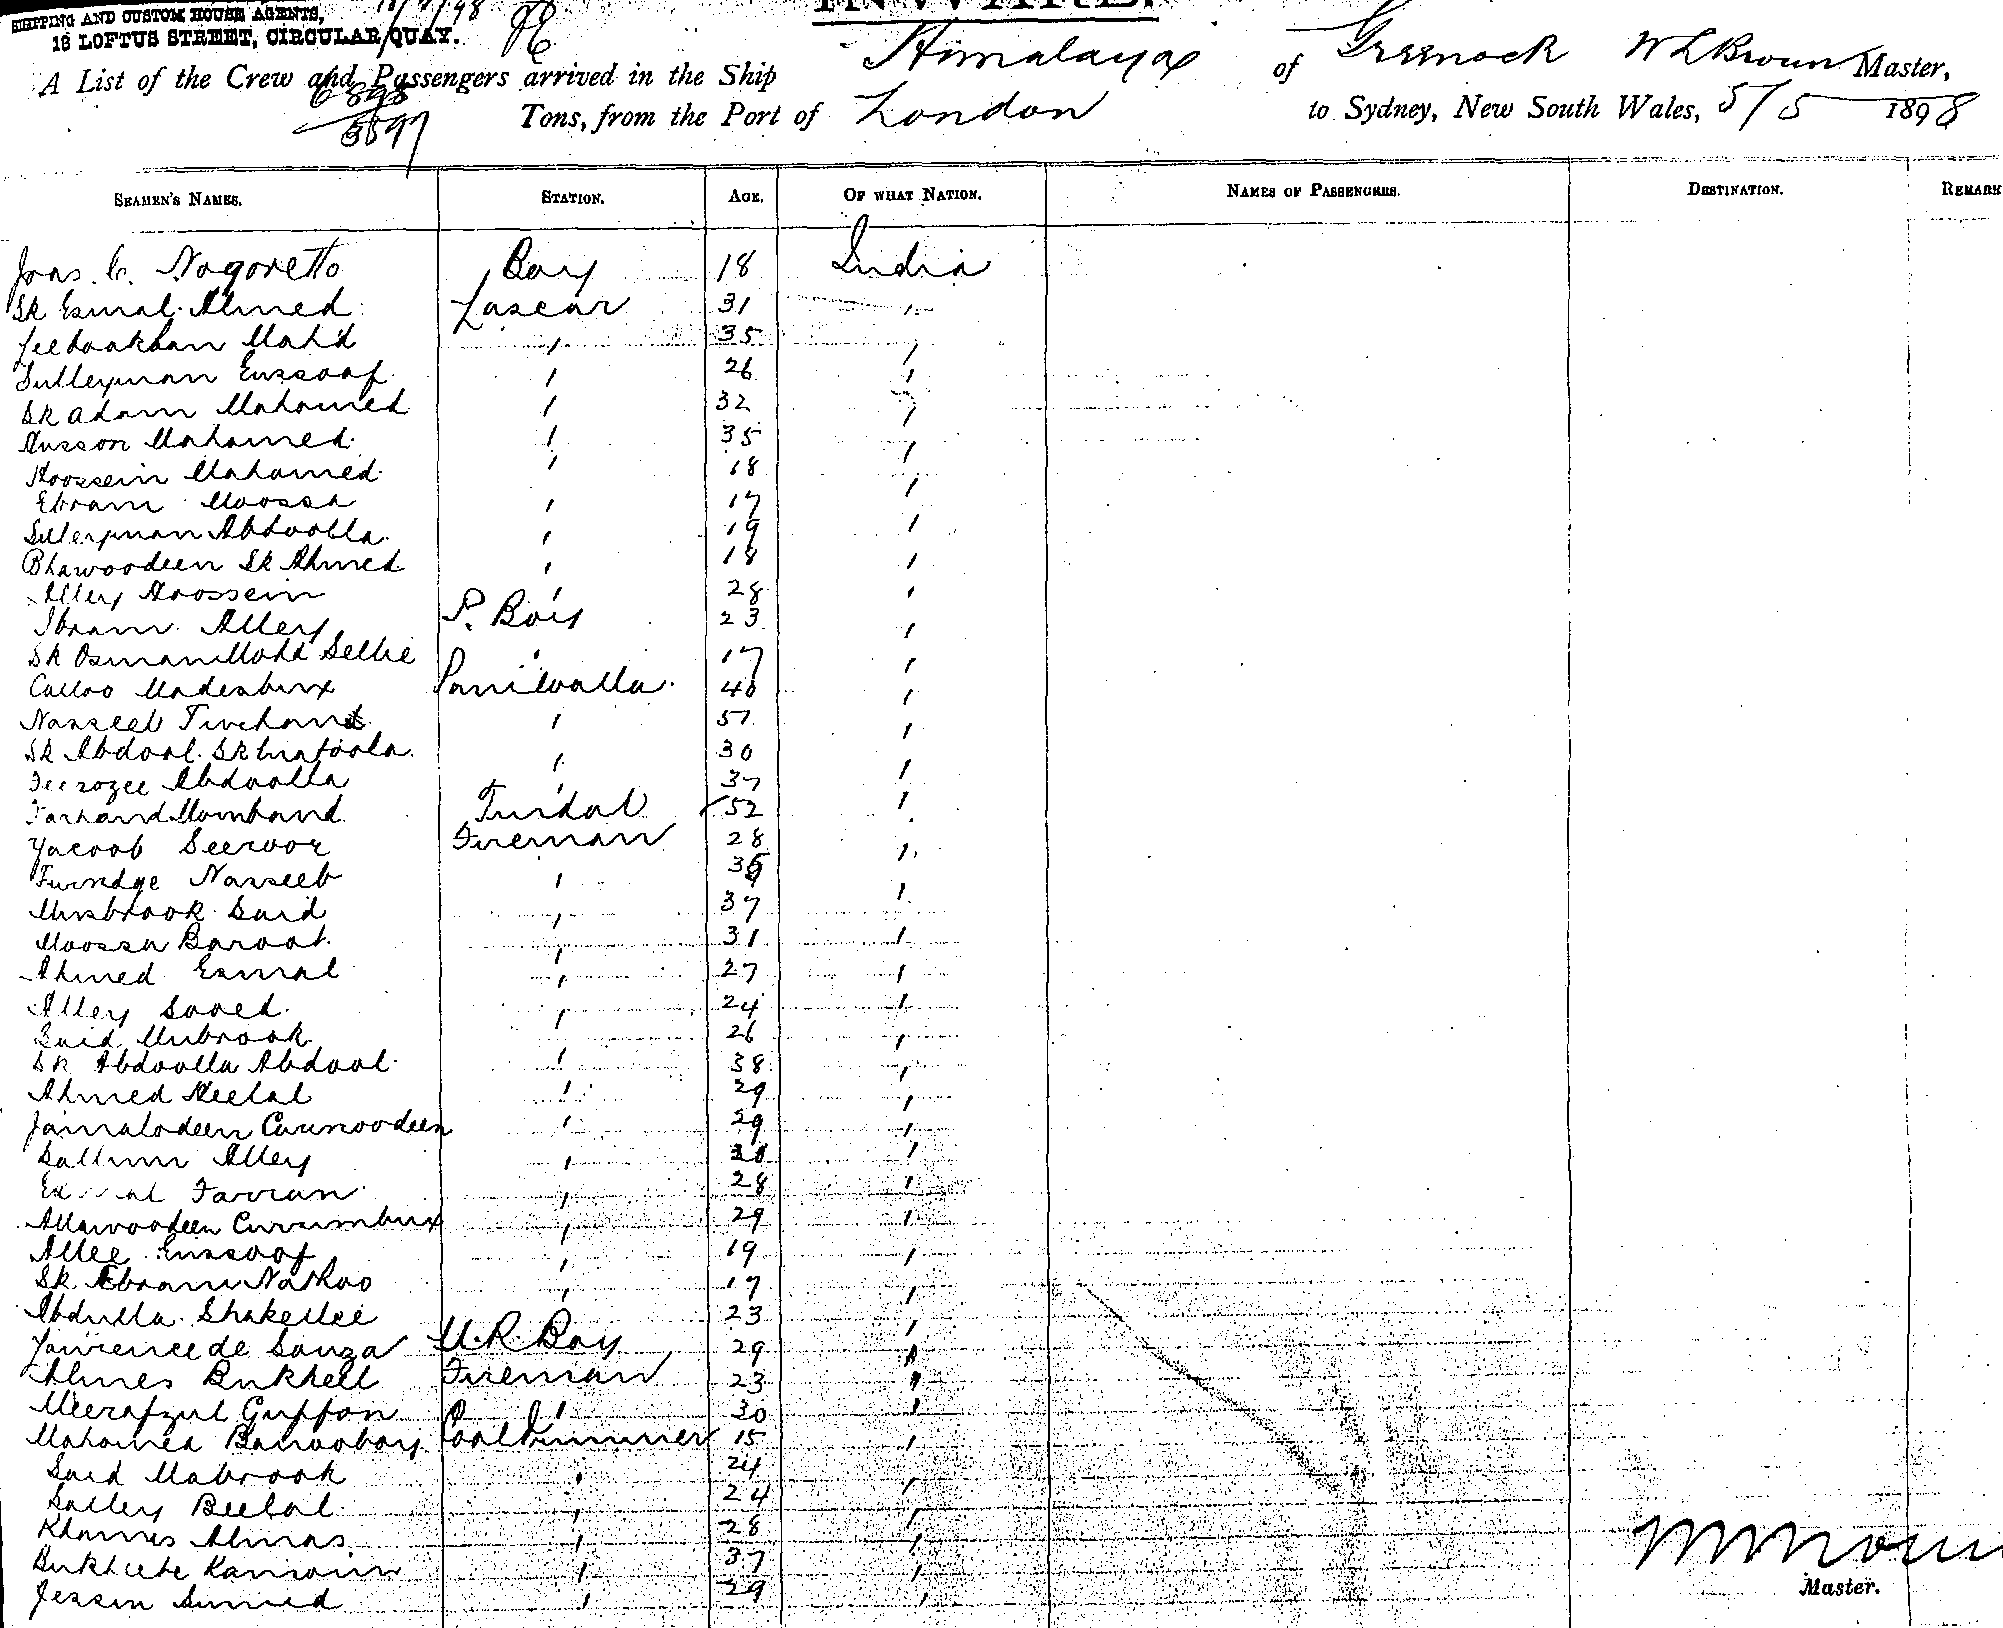 SHIPPING AND CUSTOM HOUSE AGENTS,
18 LOFTUS STREET, CIRCULAR QUAY.
INWARD.
A List of the Crew and Passengers arrived in the Ship Himalaya of Greenock W L Brown Master,
6898
3597 Tons, from the Port of London to Sydney, New South Wales, 5/5 1898
SEAMEN'S NAMES. STATION. AGE. OF WHAT NATION. NAMES OF PASSENGERS. DESTINATION. REMARK
Boy 18 India
Sk Esmal Ahmed Lascar 31 "
Mahd " 35 "
Sulleyman Eussoof " 26 "
Sk Adam Mahomed " 32 "
Husson Mahomed " 35 "
Hoossein Mahamed " 18 "
Ebram Moossa " 17 "
Suleyman Abdoolla " 19 "
Bhawoodeen Sk Ahmed " 18 "
Alley Hoossein " 28 "
Ibram Alley P. Boy 23 "
Sk Osman Mahd Sellie " 17 "
Calloo Madesbux Paniwalla 40 "
Nasseeb " 57 "
Sk Abdool Sk " 30 "
Feerozee Abdoolla " 37 "
Farhand Momband Tindal 52 "
Yacoob Seeroor Fireman 28 "
Furndge Nasseeb " "
Musbrook Said " 37 "
Moossa Baroot " 31 "
Ahmed Esmal " 27 "
Alley Saoed " 24 "
Said Mubrook " 26 "
Sk Abdoolla Abdool " 38 "
Ahmed Heelal " 29 "
Jamalodeen Cumoodeen " 29 "
Sallum Alley " "
Farran " 28 "
Allawoodeen Currimbux " 29 "
Allee Eussoof " 19 "
Sk Ebram Nathoo " 17 "
Abdulla Shakellee " 23 "
Lawrence de Souza M.R. Boy 29 "
Almes Bukhett Fireman 23 "
Meerafzul Guffon " 30 "
Mahomed Banooboy Coal Trimmer 15 "
Said Mabrook " 24 "
Salley Beelal " 24 "
Khamis Almas " 28 "
Kamsoin " 37 "
Jessin " 29 "
Master.